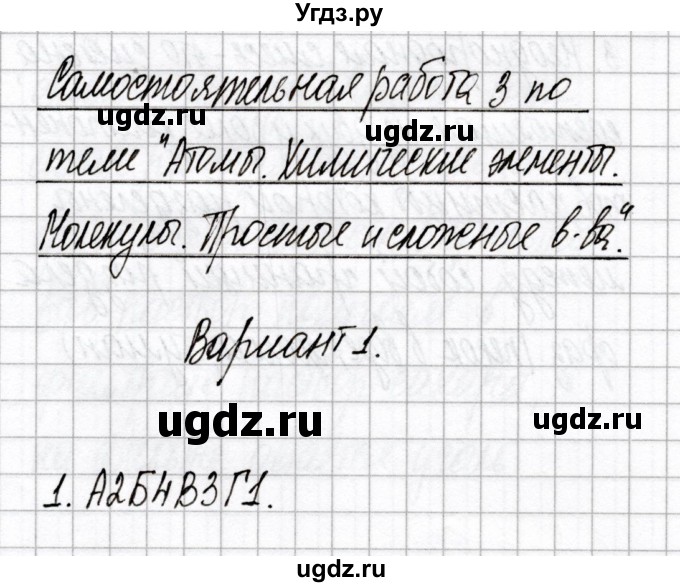 Угдз.ру
Самостоятельная работа 3 по
ugdz.ru
ugdz.ru
теме "Атомы. Химические элементы.
Молекулы. Простые и сложные в-ва".
Вариант 1.
ugdz.ru
ugdz.ru
1. А2Б4В3Г1.
ugdz.ru